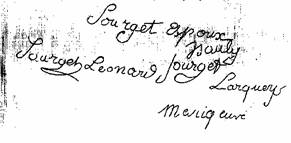 Sourget Epoux
Pauly
Saurget Leonard Sourget
Larquey